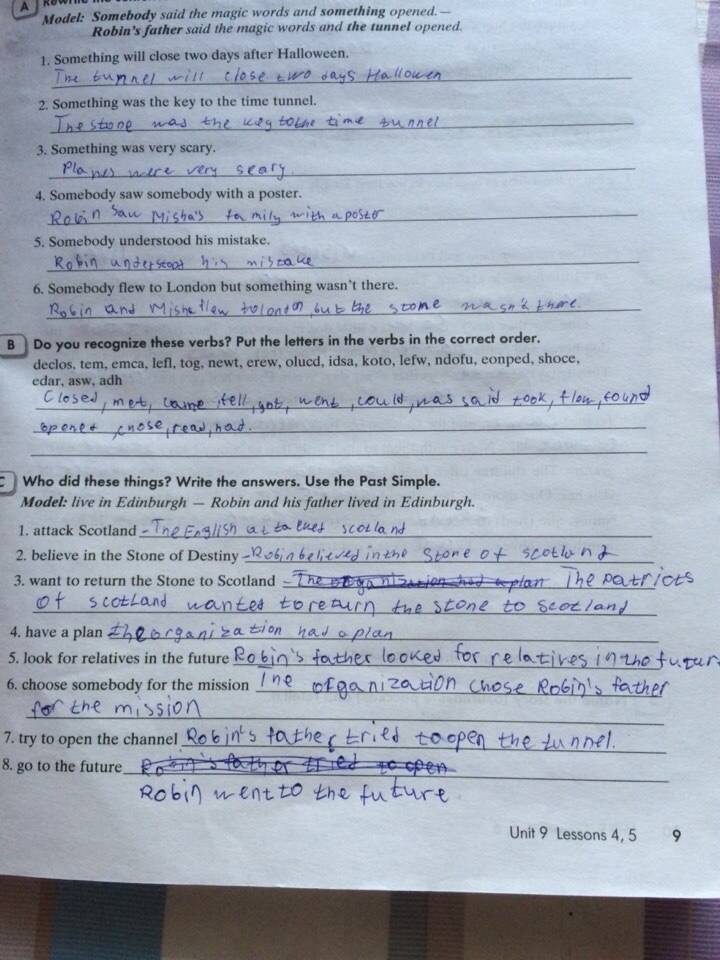 A
Model: Somebody said the magic words and something opened. —
Robin's father said the magic words and the tunnel opened.
1. Something will close two days after Halloween.
The tunnel will close two days Hallowen
2. Something was the key to the time tunnel.
The stone was the key to the time tunnel
3. Something was very scary.
Planes were very scary.
4. Somebody saw somebody with a poster.
Robin Saw Misha's family with a poster
5. Somebody understood his mistake.
Robin understood his mistake
6. Somebody flew to London but something wasn't there.
Robin and Misha flew to London, but the stome wasn't there.
B Do you recognize these verbs? Put the letters in the verbs in the correct order.
declos, tem, emca, lefl, tog, newt, erew, olucd, idsa, koto, lefw, ndofu, eonped, shoce,
edar, asw, adh
Closed, met, came, fell, got, went, could, was said took, flew, found
opened, chose, read, had.
C Who did these things? Write the answers. Use the Past Simple.
Model: live in Edinburgh — Robin and his father lived in Edinburgh.
1. attack Scotland – The English attacked scotland
2. believe in the Stone of Destiny – Robin believed in the Stone of scotland
3. want to return the Stone to Scotland – The organization had a plan The patriots
of scotland wanted to return the stone to scotland
4. have a plan the organization had a plan
5. look for relatives in the future Robin's father looked for relatives in the futur
6. choose somebody for the mission The organization chose Robin's father
for the mission
7. try to open the channel Robin's father tried to open the tunnel.
8. go to the future Robin's father tried to open
Robin went to the future
Unit 9 Lessons 4, 5 9